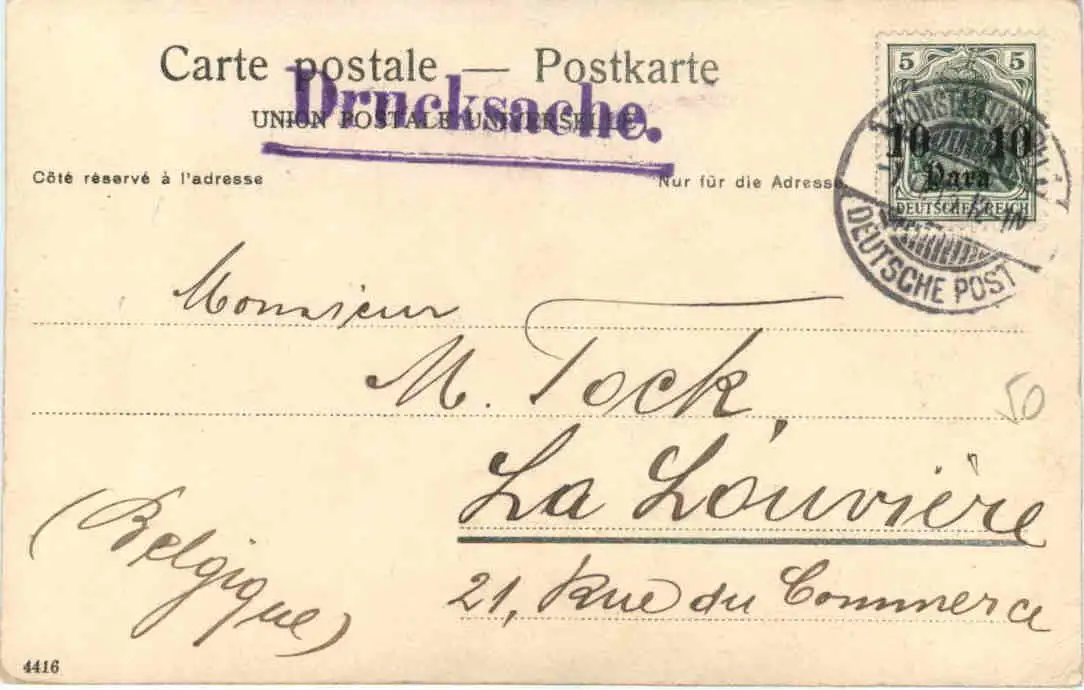 Carte postale — Postkarte
Drucksache.
UNION POSTALE UNIVERSELLE
Côté réservé à l'adresse
Nur für die Adresse
5 5
10 10
Para
DEUTSCHES REICH
DEUTSCHE POST
Monsieur
M. Tock
La Louvière
21, Rue du Commerce
(Belgique)
50
4416